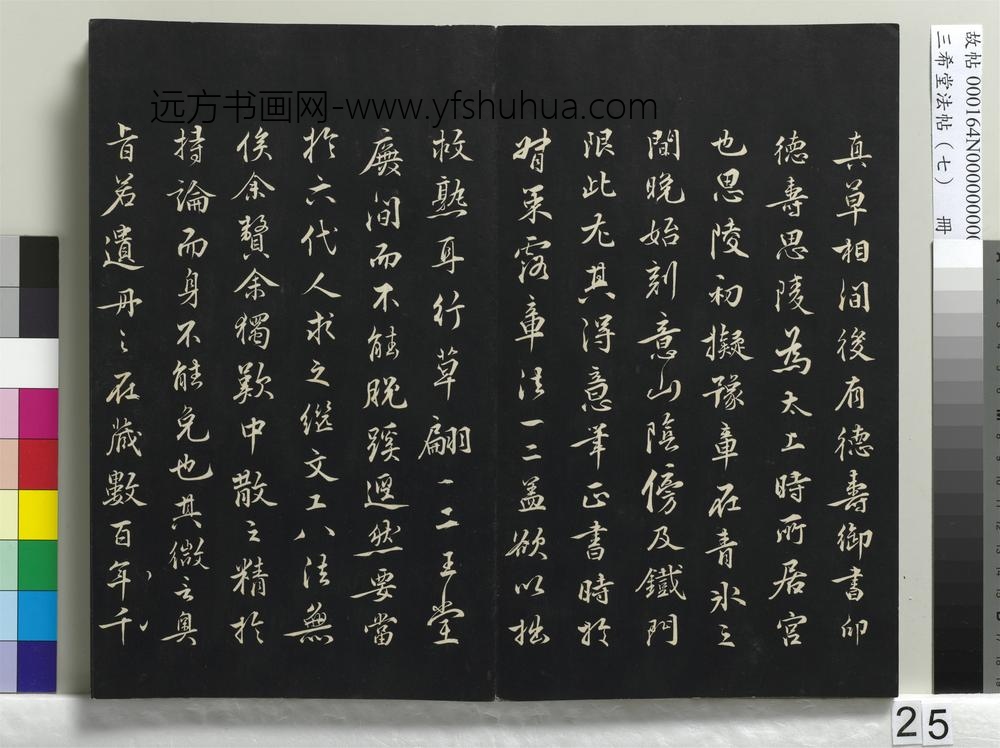 真草相間後有德壽御書卯
德壽思陵為太上時所居宮
也思陵初擬豫章在青氷之
間晚始刻意山陰傍及鐵門
限此尤其得意筆正書時於
督策露章法一二蓋欲以拙
救熟耳行草翩〻二王堂
廡間而不能脫蹊逕然要當
於六代人求之繼文工八法無
俟余贅余獨歎中散之精於
持論而身不能免也其微言奧
旨若遺丹之在歲數百年千
远方书画网-www.yfshuhua.com
故帖 000164N00000000
三希堂法帖（七） 冊
25